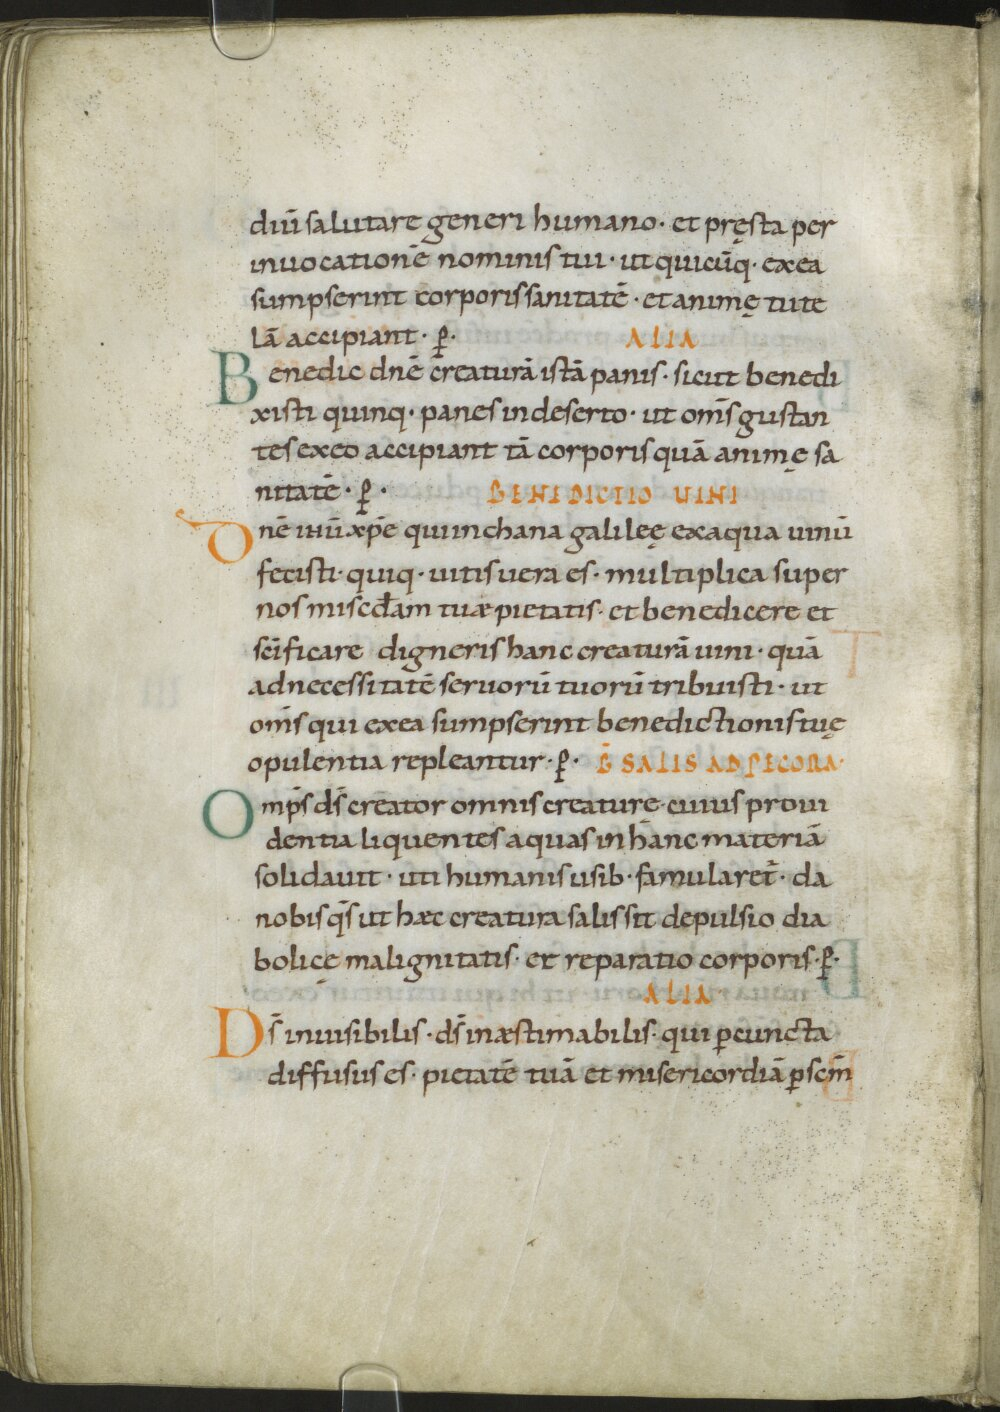 diũ salutare generi humano · et pręsta per
inuocationẽ nominis tui · ut quicũq · ex ea
sumpserint corporis sanitatẽ · et animę tute
lã accipiant · ꝑ ·  ALIA
Benedic dnẽ creaturã istã panis · sicut benedi
xisti quinq · panes in deserto · ut om̃s gustan
tes ex eo accipiant tã corporis quã animę sa
nitatẽ · ꝑ ·  BENEDICTIO UINI
Dnẽ ihũ xp̃e qui in chana galileę ex aqua uinũ
fecisti · quiq · uitis uera es · multiplica super
nos miscđam tuæ pietatis · et benedicere et
sc̃ificare digneris hanc creaturã uini · quã
ad necessitatẽ seruorũ tuorũ tribuisti · ut
om̃s qui ex ea sumpserint benedictionis tuę
opulentia repleantur · ꝑ ·  B̃ SALIS AD PECORA ·
Omp̃s ds̃ creator omnis creaturę cuius proui
dentia liquentes aquas in hanc materiã
solidauit · uti humanis usib · famularet̃ · da
nobis qs̃ ut hæc creatura salis sit depulsio dia
bolicę malignitatis · et reparatio corporis · ꝑ ·
ALIA
Ds̃ inuisibilis · ds̃ inæstimabilis · qui ꝑ cuncta
diffusus es · pietatẽ tuã et misericordiã ꝑ scm̃